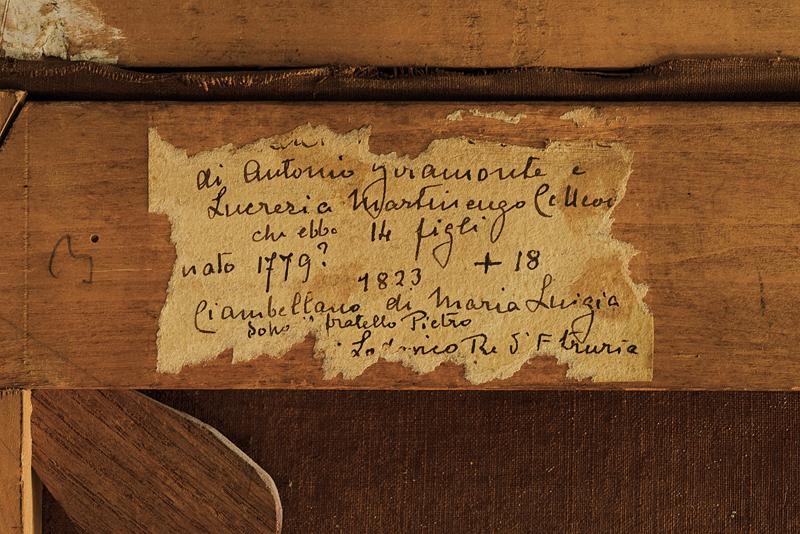 di Antonio Giramonte e
Lucrezia Martinengo
che ebbe 14 figli
nato 1779? + 18
1823
Ciambellano di Maria Luigia
dopo il fratello Pietro
Lodovico Re d'Etruria
3